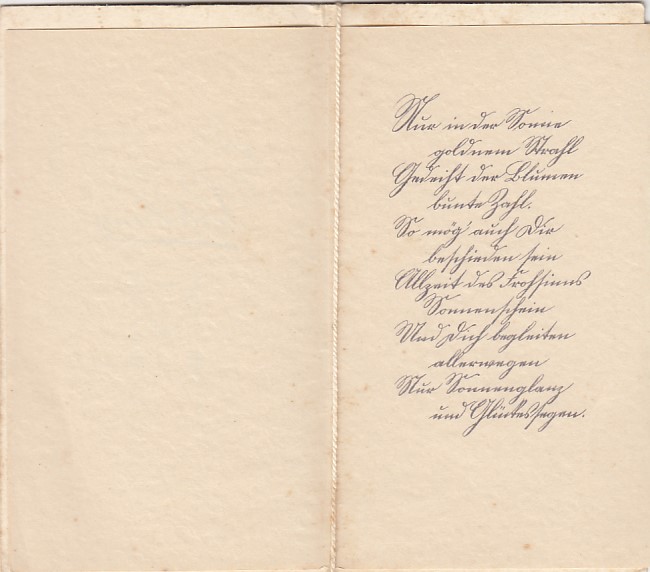 Nur in der Sonne
goldnem Strahl
Gedeiht der Blumen
bunte Zahl.
So mög' auch Dir
beschieden sein
Allzeit des Frohsinns
Sonnenschein
Und Dich begleiten
allerwegen
Nur Sonnenglanz
und Glückessegen.